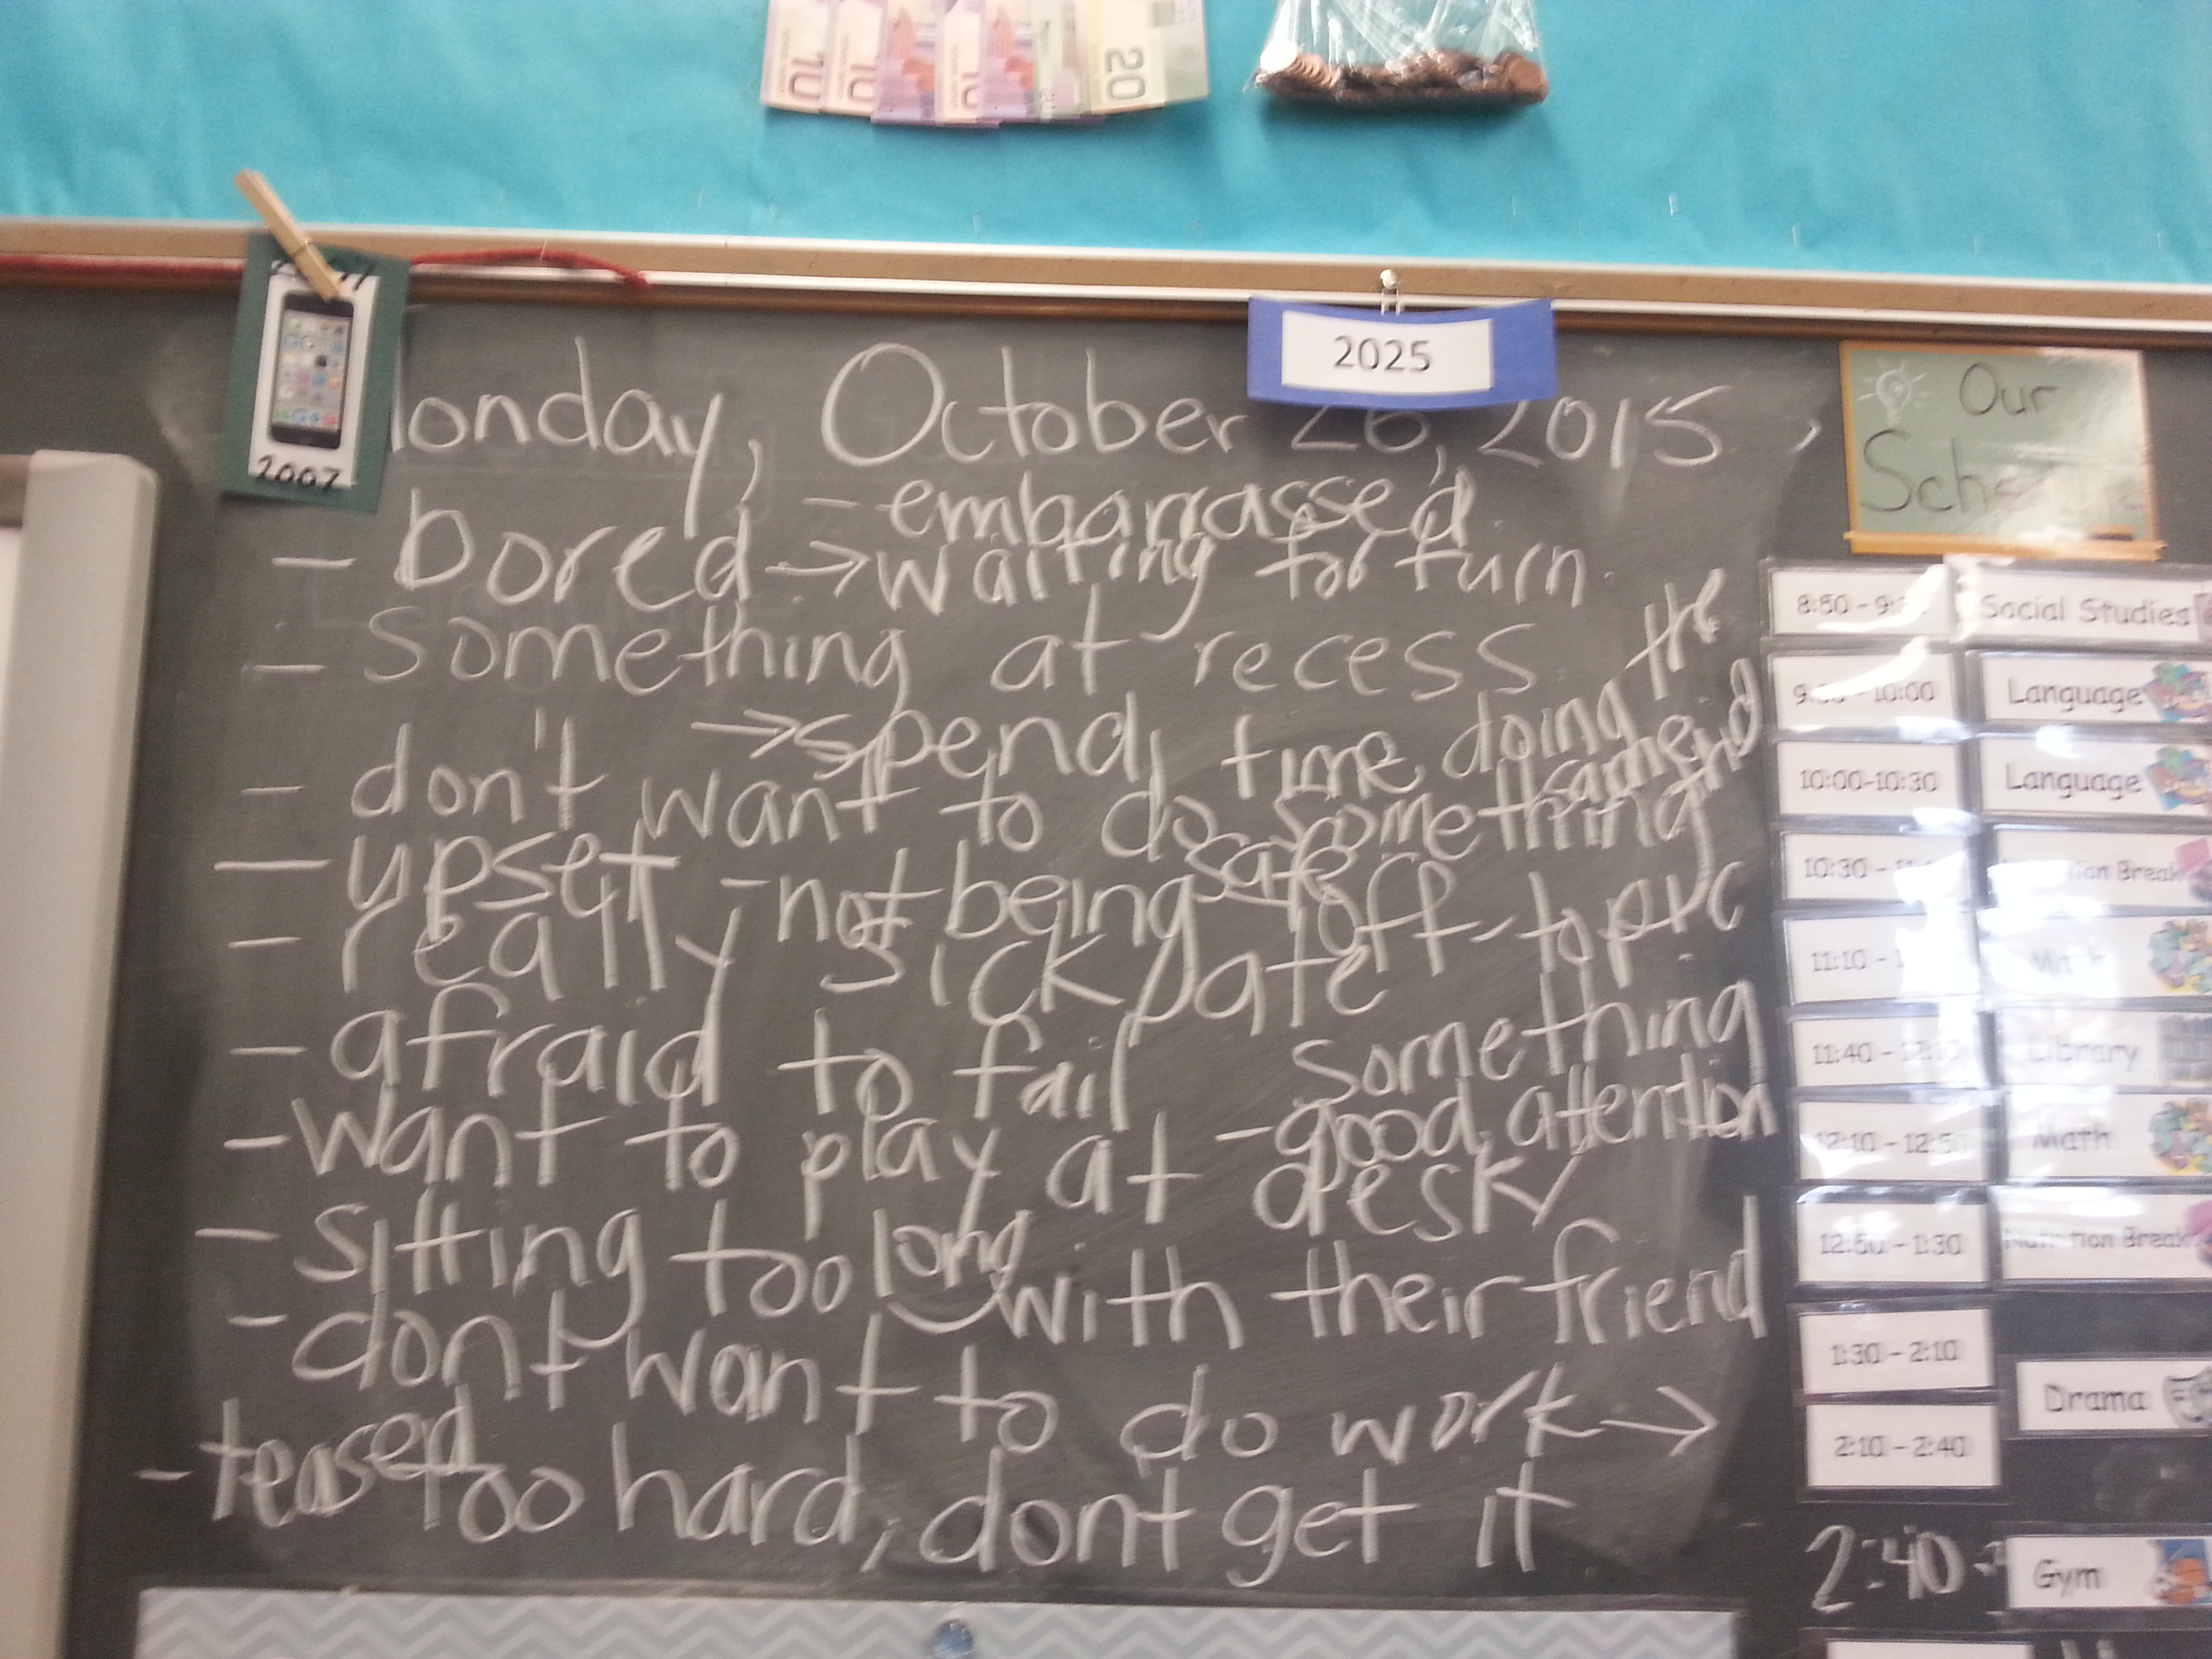 10 10 10 20
2007
2025
onday, October 26, 2015
- embarrassed
- bored → waiting for turn
- something at recess
→ spend time doing the same
- don't want to do something
- upset - not being safe off-topic
- really sick
- afraid to fail something
- want to play at desk
- good attention
- sitting too long with their friend
- dont want to do work →
- teased too hard, dont get it
Our
Sch
8:50 - 9: Social Studies
9: - 10:00 Language
10:00-10:30 Language
10:30 - Break
11:10 - Math
11:40 - Library
12:10 - 12:50 Math
12:50 - 1:30 Nutrition Break
1:30 - 2:10 Drama
2:10 - 2:40
2:40 - Gym